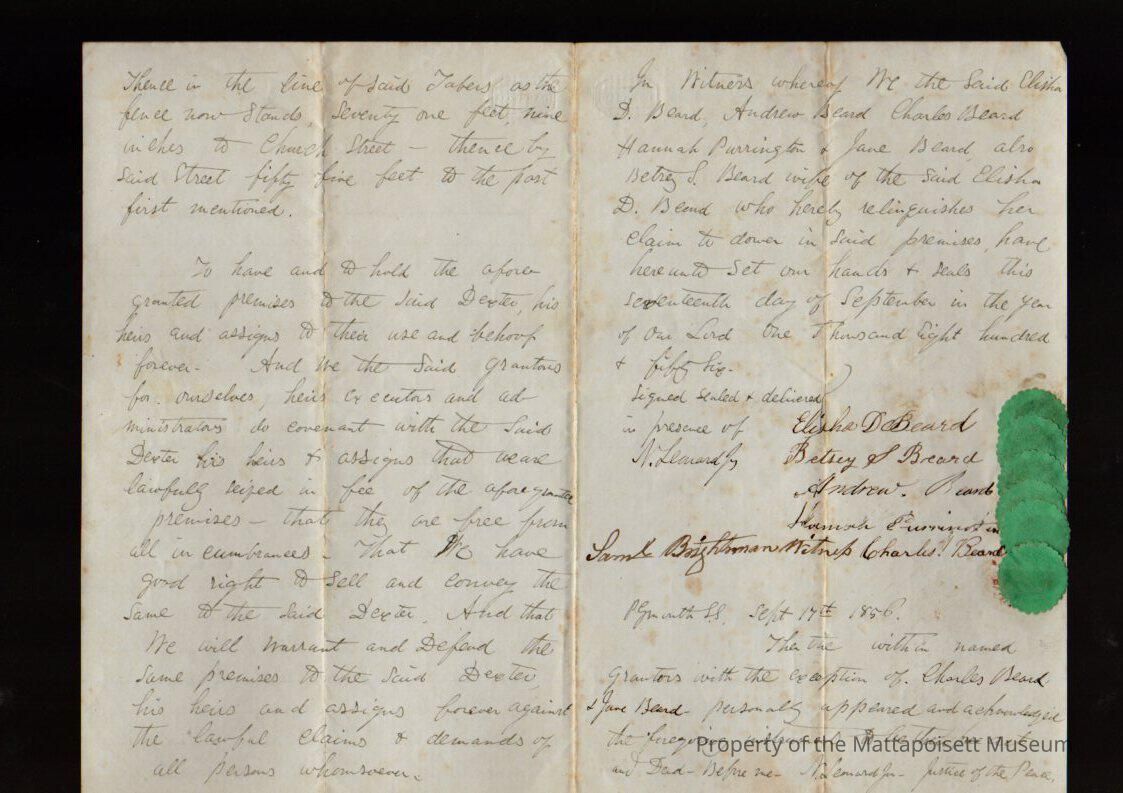 Thence in the line of Said Tabers as the
fence now Stands, Seventy one feet, nine
inches to Church Street - thence by
Said Street fifty five feet to the post
first mentioned.
To have and to hold the afore
granted premises to the Said Dexter, his
heirs and assigns to their use and behoof
forever. And We the Said Grantors
for ourselves, heirs executors and ad
ministrators do covenant with the Said
Dexter his heirs & assigns that we are
lawfully seized in fee of the afore granted
premises - that they are free from
all incumbrances - That We have
good right to Sell and convey the
Same to the Said Dexter. And that
We will Warrant and Defend the
Same premises to the Said Dexter,
his heirs and assigns forever against
the lawful claims & demands of
all persons whomsoever.
In Witness whereof We the Said Elisha
D. Beard, Andrew Beard Charles Beard
Hannah Purrington & Jane Beard, also
Betsey S. Beard wife of the Said Elisha
D. Beard who hereby relinquishes her
claim to dower in Said premises, have
hereunto Set our hands & seals this
seventeenth day of September in the year
of Our Lord One Thousand Eight hundred
& fifty Six.
Signed sealed & delivered
in presence of Elisha D Beard
N. Leonard Jr Betsey S Beard
Andrew. Beard
Hannah Purrington
Saml Brightman Witness Charles Beard
Plymouth SS. Sept 17th 1856.
Then the within named
Grantors with the exception of Charles Beard
& Jane Beard - personally appeared and acknowledged
the foregoing instrument to be their
and Deed - Before me - N. Leonard Jr - Justice of the Peace,
Property of the Mattapoisett Museum